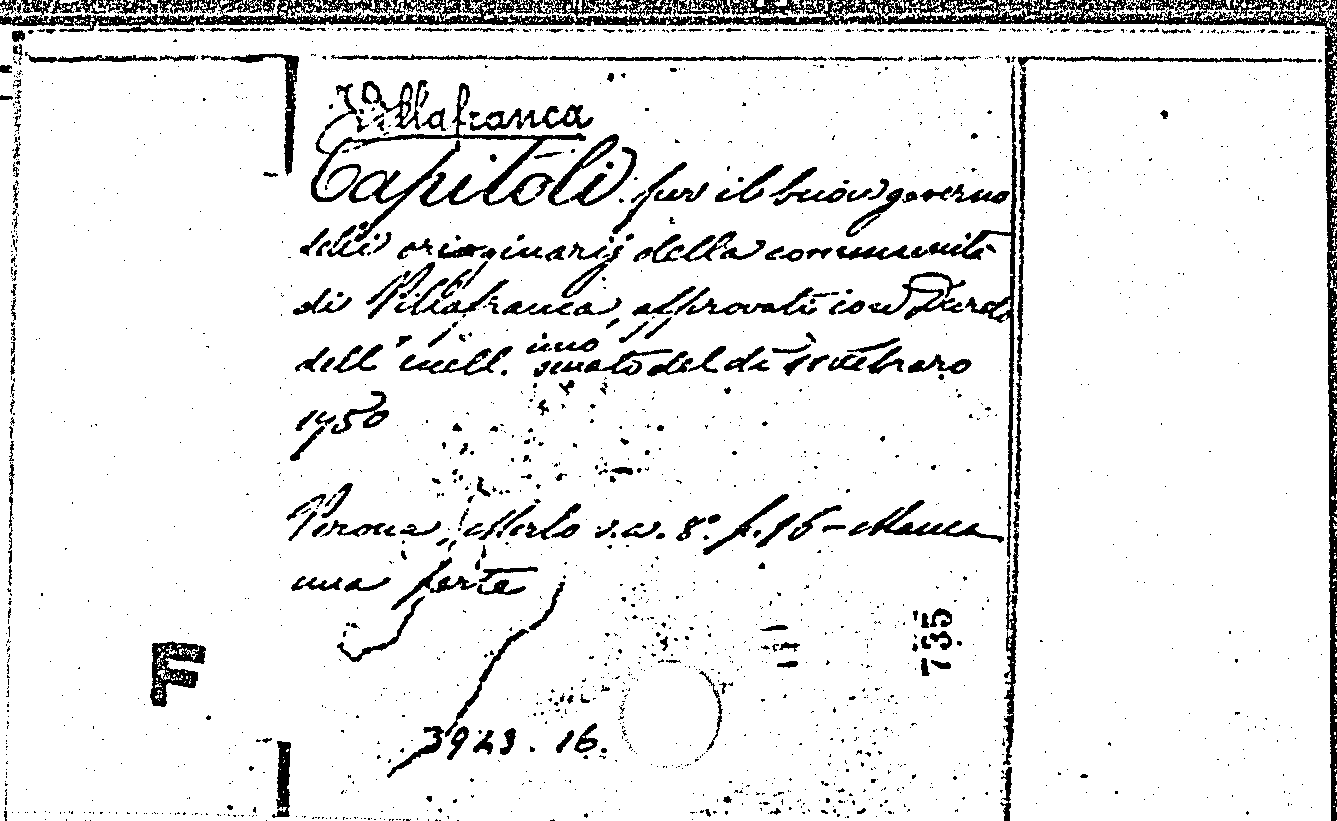 Villafranca
Capitoli per il buon governo
delli originarij della communità
di Villafranca, approvati con Decreto
dell' eccell.mo senato del dì 11 febraro
1750
Verona, Merlo s.a. 8° p. 16 - Manca
una parte
735
F
3923.16.